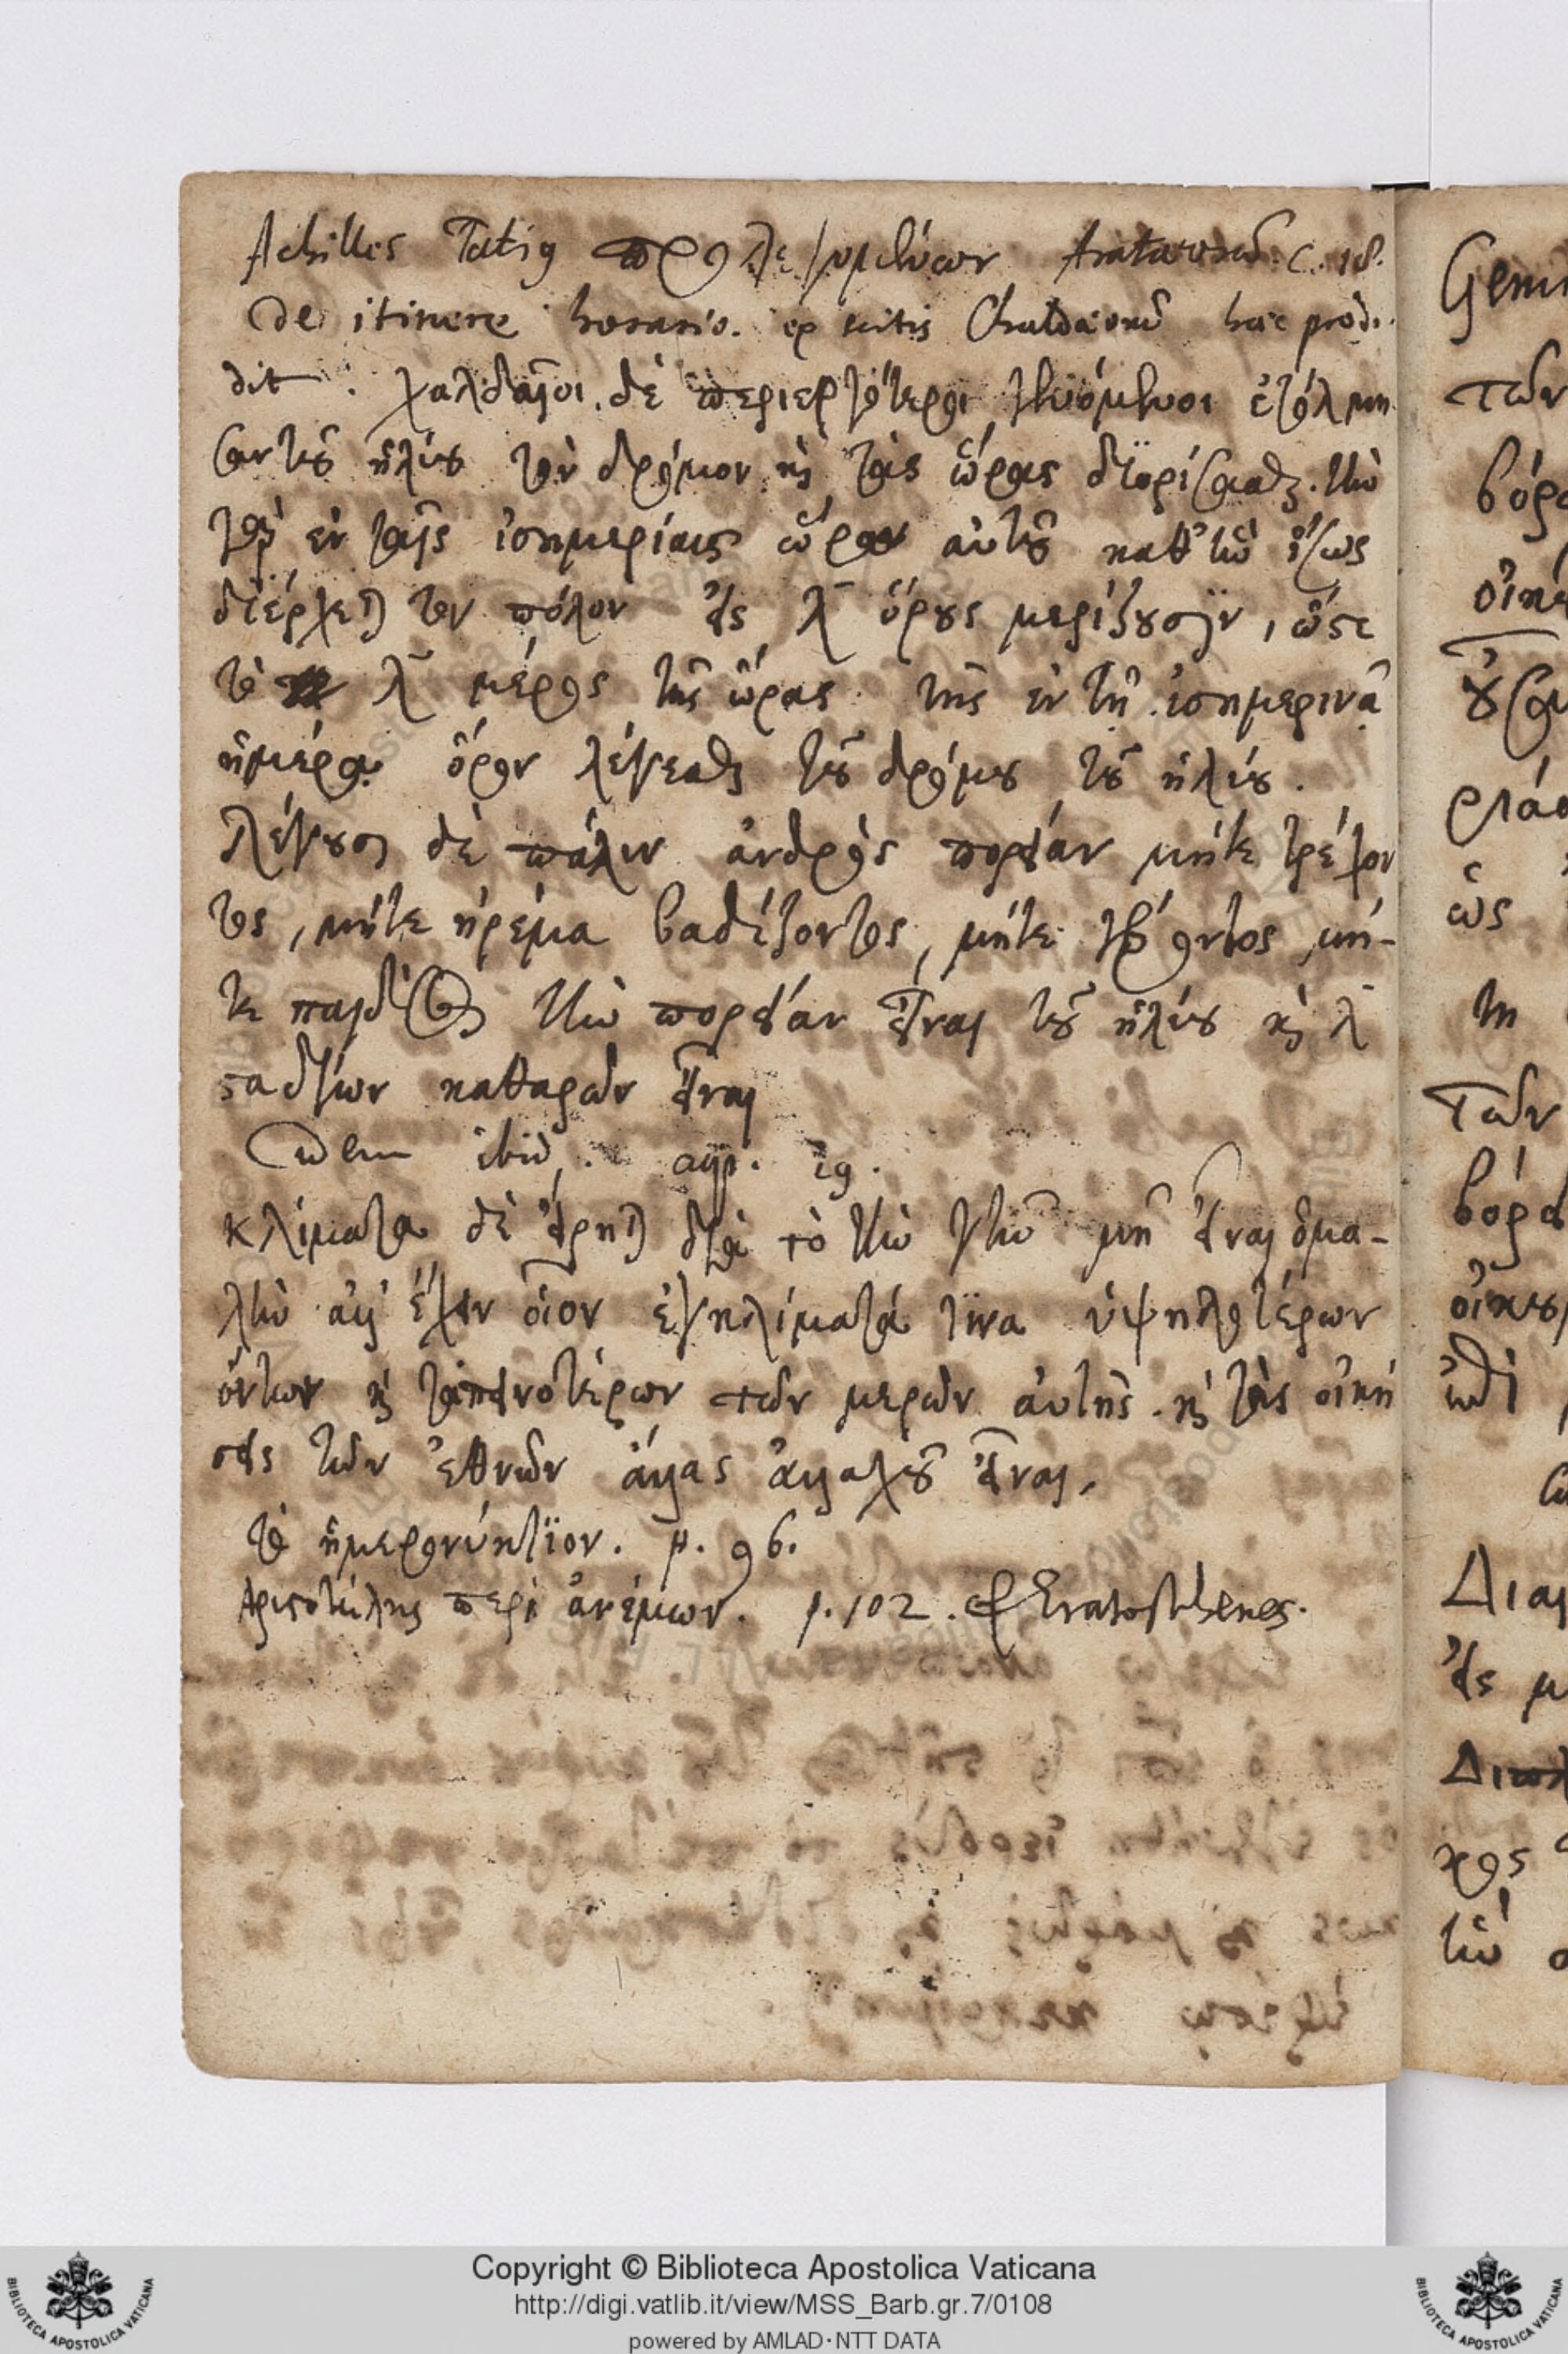 Achilles Tatius προλεγομένων Arataeorum c. 18.
de itinere horario ex scitis Chaldaeorum haec prodi-
dit. χαλδαῖοι δὲ περιεργότεροι γενόμενοι ἐτόλμη
σαν τοῦ ἡλίου τὸν δρόμον καὶ τὰς ὥρας διορίσασθαι. τὴν
γὰρ ἐν ταῖς ἰσημερίαις ὥραν αὐτοῦ καθ' ἣν ἴσως
διέρχεται τὸν πόλον εἰς λ ὅρους μερίζουσιν, ὥστε
τὸ λ μέρος τῆς ὥρας τῆς ἐν τῇ ἰσημερινῇ
ἡμέρᾳ ὅρον λέγεσθαι τοῦ δρόμου τοῦ ἡλίου.
λέγουσι δὲ πάλιν ἀνδρὸς πορείαν μήτε τρέχον
τος, μήτε ἠρέμα βαδίζοντος, μήτε γέροντος μή-
τε παιδὸς τὴν πορείαν εἶναι τοῦ ἡλίου καὶ λ
σταδίων καθαρῶν εἶναι
Idem ibid. cap. 19.
κλίματα δὲ εἴρηται διὰ τὸ τὴν γῆν μὴ εἶναι ὁμα-
λὴν ἀλλ' ἔχειν οἷον ἐγκλίματά τινα ὑψηλοτέρων
ὄντων καὶ ταπεινοτέρων τῶν μερῶν αὐτῆς καὶ τὰς οἰκή
σεις τῶν ἐθνῶν ἄλλας ἀλλαχοῦ εἶναι.
τὸ ἡμερονύκτιον. p. 96.
Ἀριστοτέλης περὶ ἀνέμων. p. 102. et Eratosthenes.
Gemi
τῶν
βόρε
οἰκή
ὡς
τη
Τῶν
Διαι
εἰς μ
κος
Copyright © Biblioteca Apostolica Vaticana
http://digi.vatlib.it/view/MSS_Barb.gr.7/0108
powered by AMLAD·NTT DATA
BIBLIOTECA APOSTOLICA VATICANA
BIBLIOTECA APOSTOLICA VATICANA